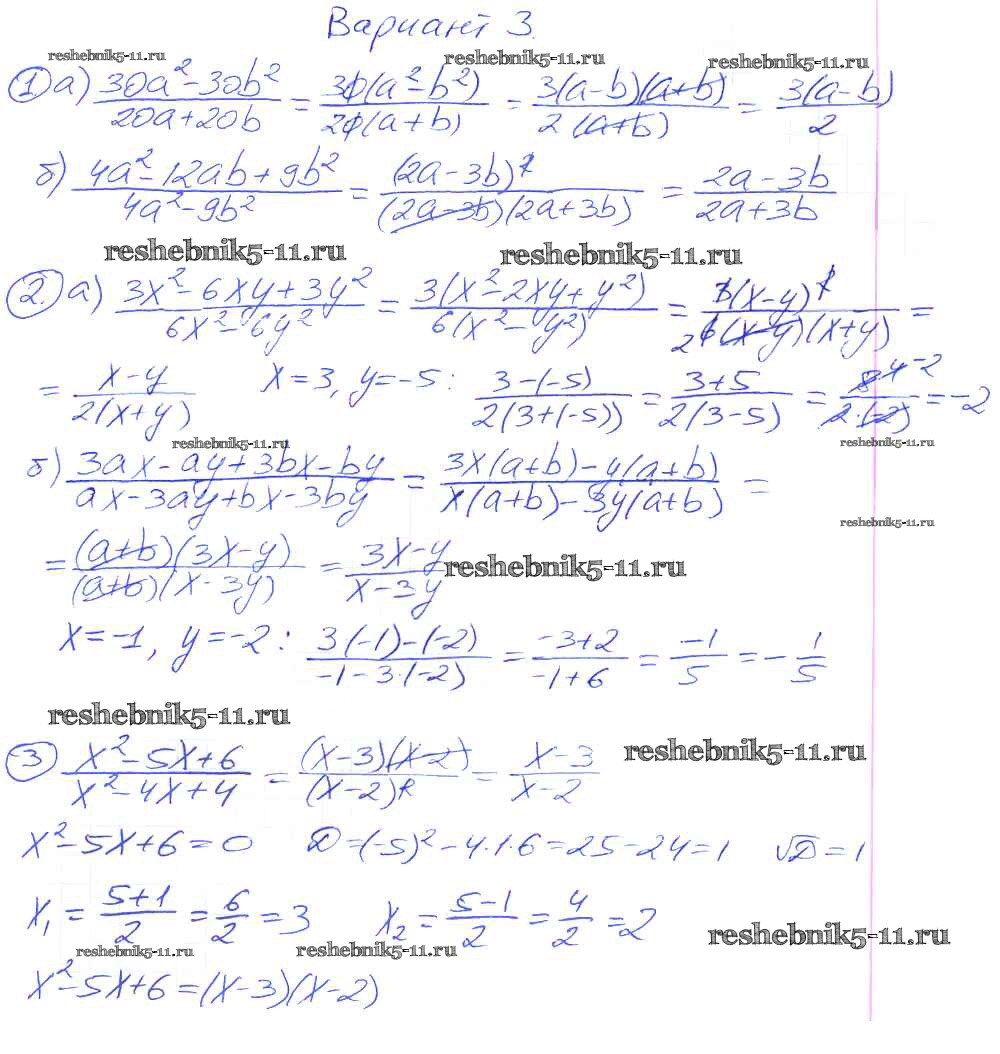 Вариант 3.
reshebnik5-11.ru reshebnik5-11.ru reshebnik5-11.ru
① а) (30a² - 30b²)/(20a + 20b) = (30(a² - b²))/(20(a + b)) = (3(a - b)(a + b))/(2(a + b)) = (3(a - b))/2
б) (4a² - 12ab + 9b²)/(4a² - 9b²) = ((2a - 3b)²)/((2a - 3b)(2a + 3b)) = (2a - 3b)/(2a + 3b)
reshebnik5-11.ru reshebnik5-11.ru
②. а) (3x² - 6xy + 3y²)/(6x² - 6y²) = (3(x² - 2xy + y²))/(6(x² - y²)) = (3(x - y)²)/(2 6(x - y)(x + y)) =
= (x - y)/(2(x + y)) x = 3, y = -5 : (3 - (-5))/(2(3 + (-5))) = (3 + 5)/(2(3 - 5)) = (8 4 -2)/(2·(-2)) = -2
reshebnik5-11.ru reshebnik5-11.ru
б) (3ax - ay + 3bx - by)/(ax - 3ay + bx - 3by) = (3x(a + b) - y(a + b))/(x(a + b) - 3y(a + b)) =
reshebnik5-11.ru
= ((a + b)(3x - y))/((a + b)(x - 3y)) = (3x - y)/(x - 3y) reshebnik5-11.ru
x = -1, y = -2 : (3(-1) - (-2))/(-1 - 3·(-2)) = (-3 + 2)/(-1 + 6) = (-1)/5 = -1/5
reshebnik5-11.ru
③ (x² - 5x + 6)/(x² - 4x + 4) = ((x - 3)(x - 2))/((x - 2)²) = (x - 3)/(x - 2) reshebnik5-11.ru
x² - 5x + 6 = 0 D = (-5)² - 4·1·6 = 25 - 24 = 1 √D = 1
x₁ = (5 + 1)/2 = 6/2 = 3 x₂ = (5 - 1)/2 = 4/2 = 2 reshebnik5-11.ru
reshebnik5-11.ru reshebnik5-11.ru
x² - 5x + 6 = (x - 3)(x - 2)